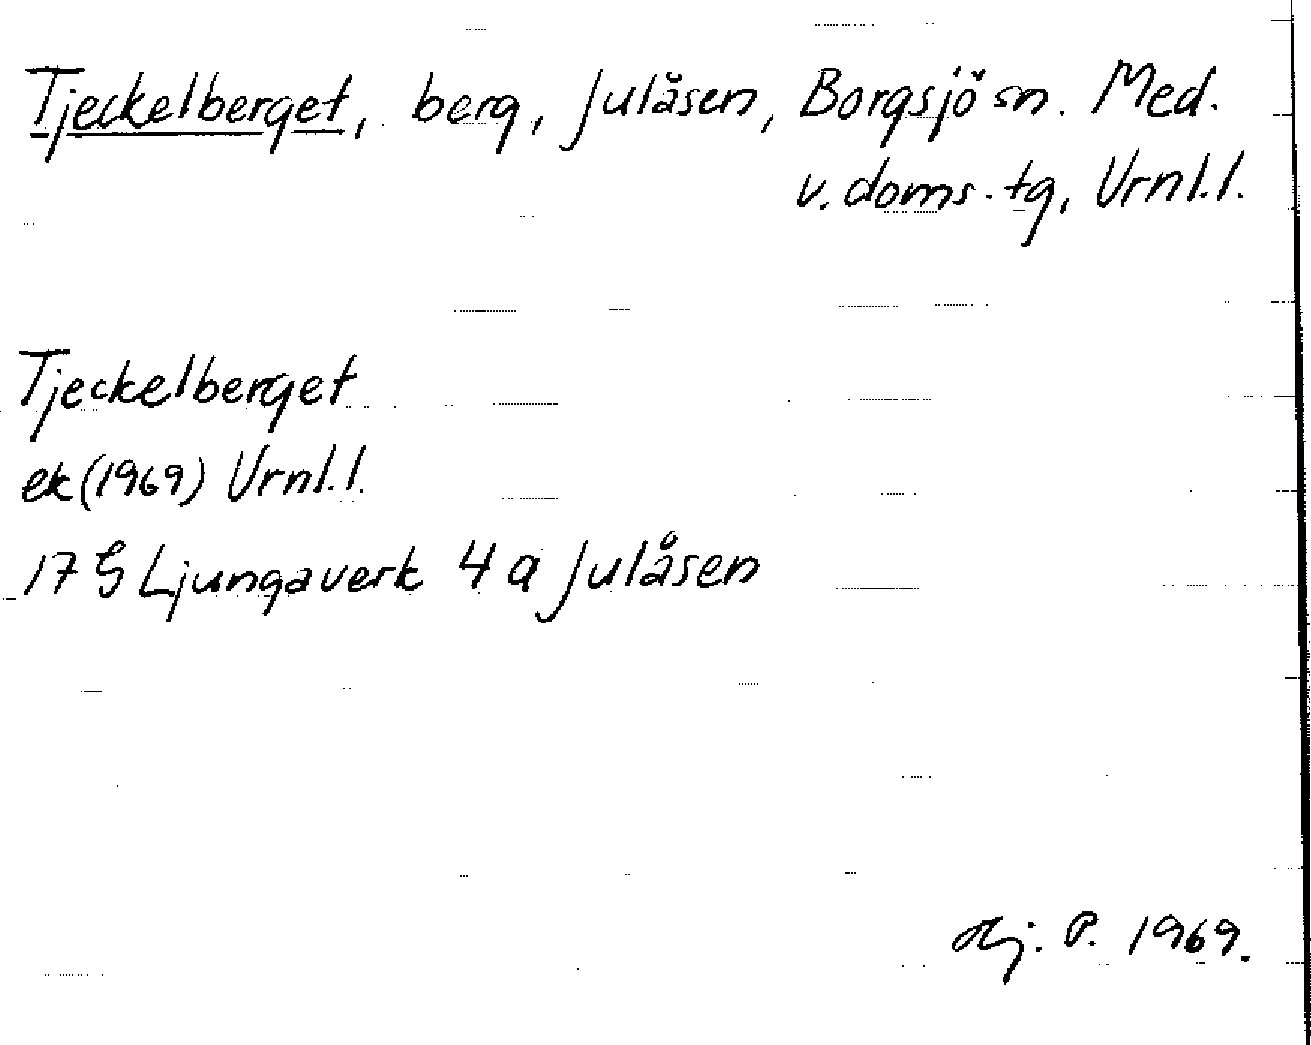 Tjeckelberget, berg, Julåsen, Borgsjö sn. Med.
v. doms. tg, Vrnl.l.
Tjeckelberget
ek (1969) Vrnl.l.
17 G Ljungaverk 4 a Julåsen
Hj. P. 1969.